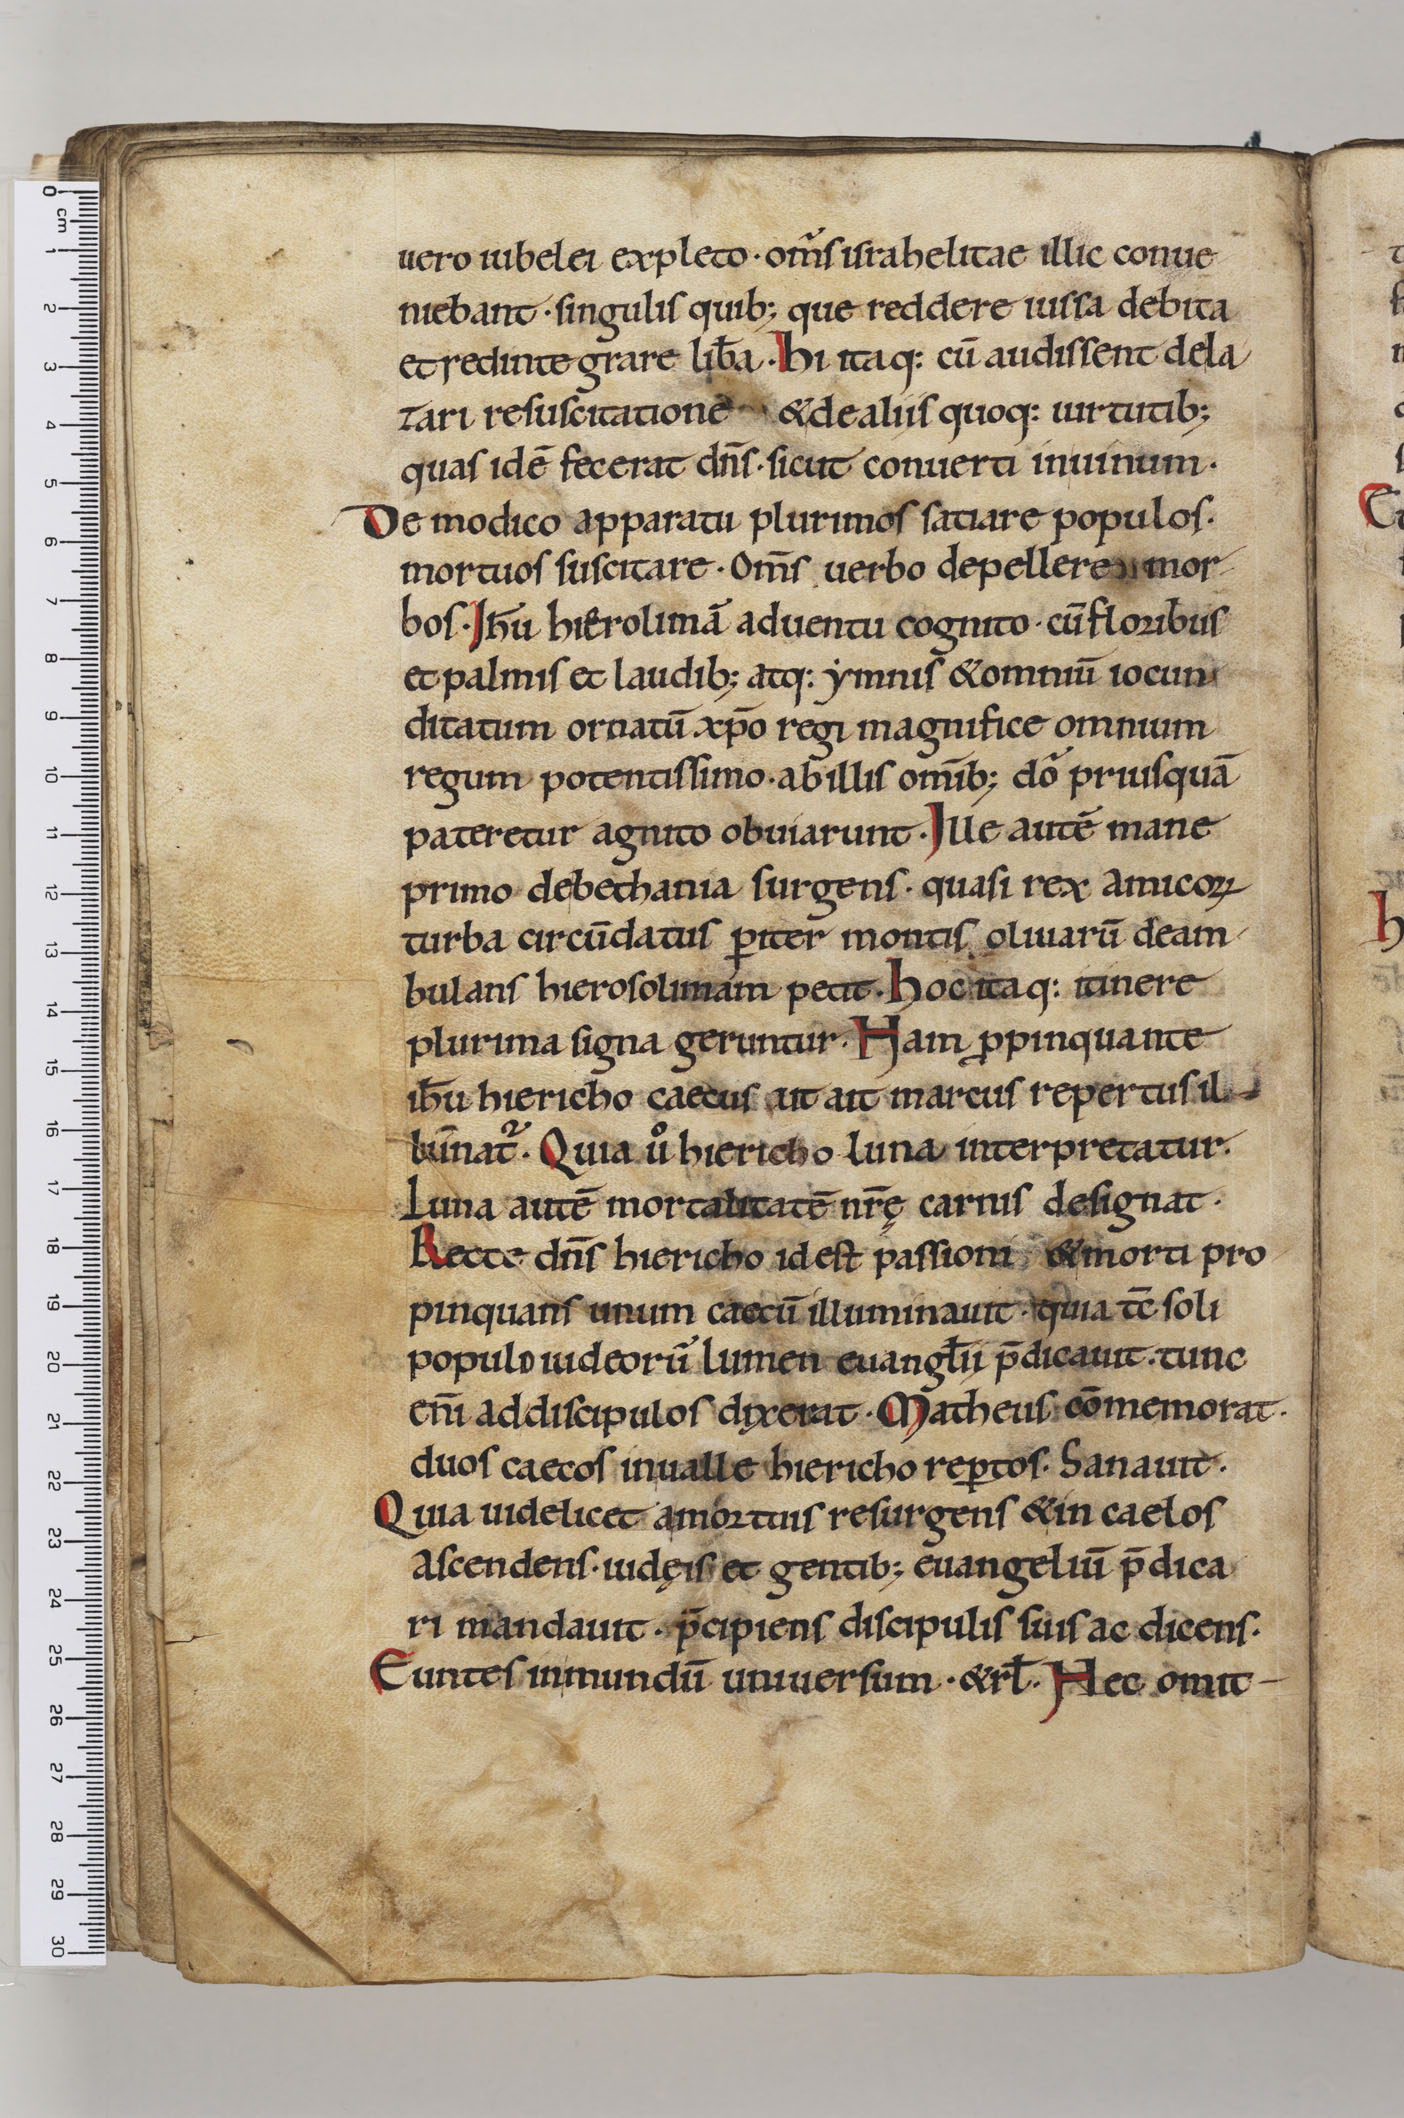 uero iubelei expleto · om̅s israhelitae illic conue
niebant · singulis quib; que reddere iussa debita
et redintegrare lib̅a · hi itaq: cū audissent dela
zari resuscitatione &dealiis quoq: uirtutib;
quas idē fecerat dn̅s · sicut conuerti inuinum ·
De modico apparatu plurimos satiare populos ·
mortuos suscitare · Om̅s uerbo depellere mor
bos · Ih̅u hierolimā aduentu cognito · cū floribus
et palmis et laudib; atq: ymnis &omniū iocun
ditatum ornatū xp̅o regi magnifice omnium
regum potentissimo · ab illis omib; do̅ priusquā
pateretur agnito obuiarunt · Ille autē mane
primo debethania surgens · quasi rex amicoꝝ
turba circūdatus ꝑiter montis oliuarū deam
bulans hierosolimam petit · hoc itaq: itinere
plurima signa geruntur · Nam ꝓpinquante
ih̅u hiericho caecus ut ait marcus repertus il
lūnat᷑ · Quia uº hiericho luna interpretatur ·
Luna autē mortalitatē nr̅ę carnis designat ·
Recte dn̅s hiericho id est passioni &morti pro
pinquans unum caecū illuminauit · quia tc̅ soli
populo iudeorū lumen euangl̅ii p̅dicauit · tunc
eni̅ ad discipulos dixerat · Matheus cōmemorat ·
duos caecos inualle hiericho reꝑtos · Sanauit ·
Quia uidelicet amortuis resurgens &in caelos
ascendens · iudęis et gentib; euangeliū p̅dica
ri mandauit · p̅cipiens discipulis suis ac dicens ·
Euntes inmundū uniuersum · &rl̅ · Nec omit
0 cm 1 2 3 4 5 6 7 8 9 10 11 12 13 14 15 16 17 18 19 20 21 22 23 24 25 26 27 28 29 30